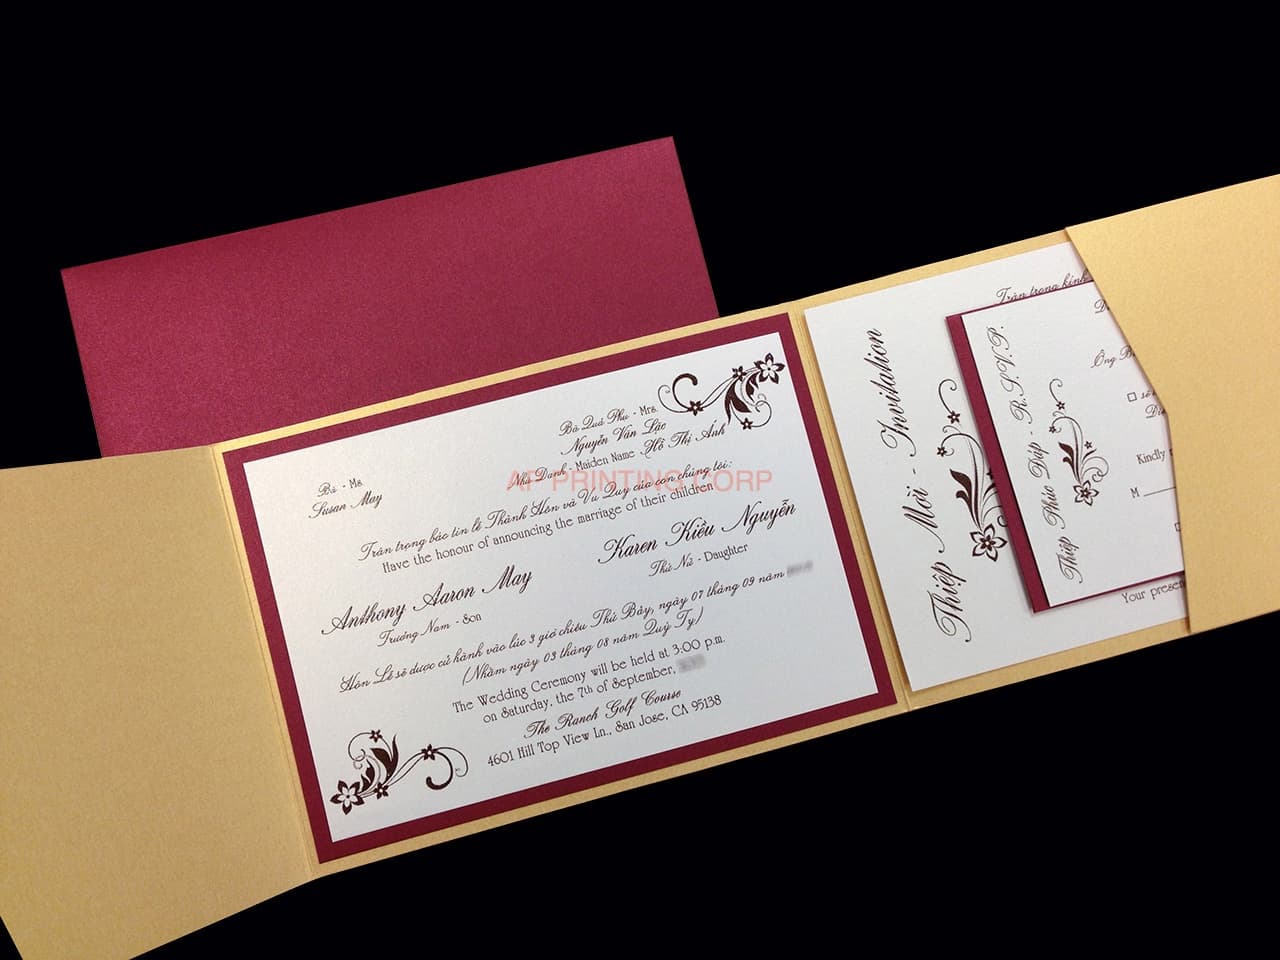 Bà - Ms.
Susan May
Bà Quả Phụ - Mrs.
Nguyễn Văn Lắc
Nhũ Danh - Maiden Name - Hồ Thị Ánh
AP PRINTING CORP
Trân trọng báo tin lễ Thành Hôn và Vu Quy của con chúng tôi:
Have the honour of announcing the marriage of their children
Anthony Aaron May
Trưởng Nam - Son
Karen Kiều Nguyễn
Thứ Nữ - Daughter
Hôn Lễ sẽ được cử hành vào lúc 3 giờ chiều Thứ Bảy, ngày 07 tháng 09 năm
(Nhằm ngày 03 tháng 08 năm Quý Tỵ)
The Wedding Ceremony will be held at 3:00 p.m.
on Saturday, the 7th of September,
The Ranch Golf Course
4601 Hill Top View Ln., San Jose, CA 95138
Thiệp Mời - Invitation
Trân trọng kính
Your
Thiệp Phúc Đáp - R.S.V.P.
Ông
Kindly
M